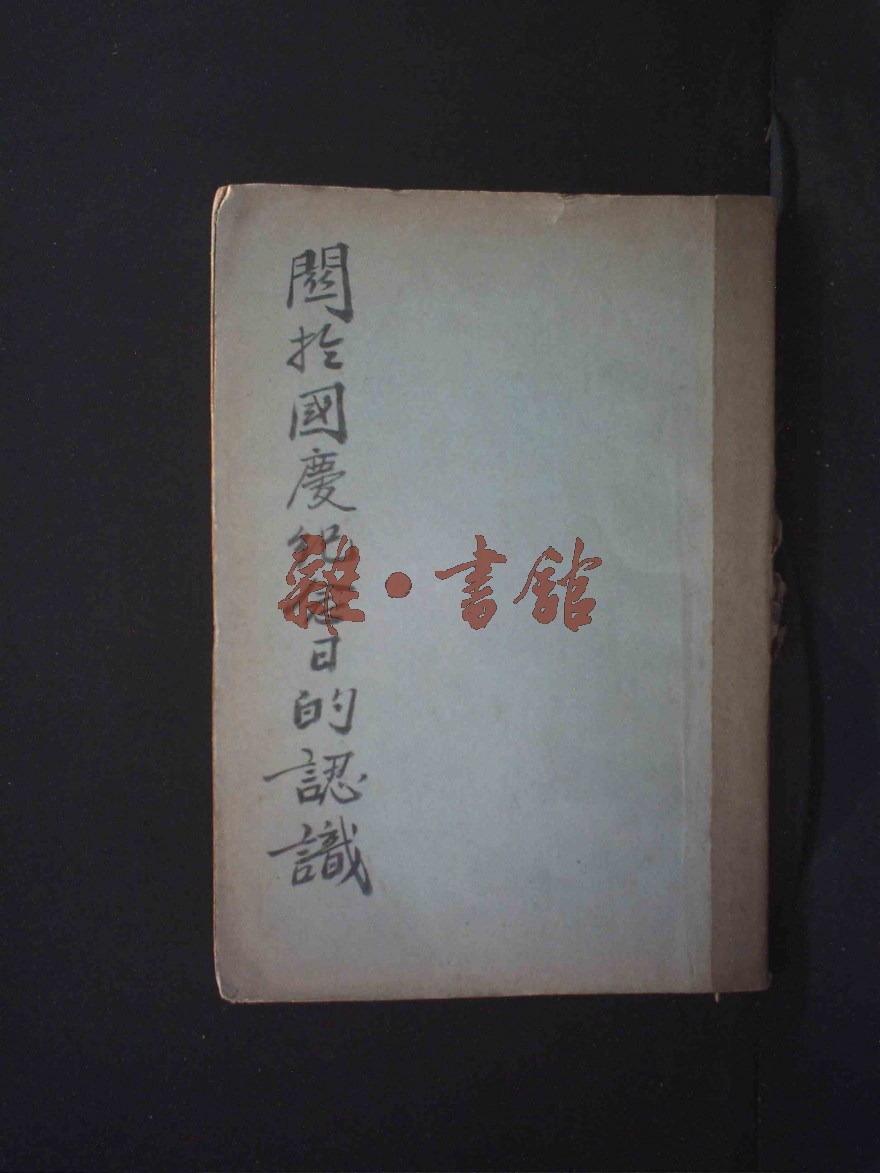 關於國慶紀念日的認識
雜·書館